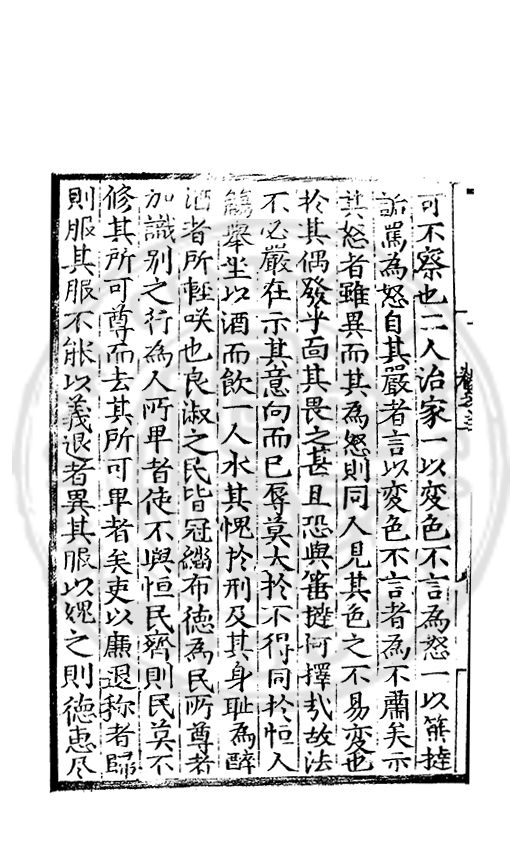 可不察也二人治家一以変色不言為怒一以箠撻
詬罵為怒自其嚴者言以変色不言者為不肅矣示
其怒者雖異而其為怒則同人見其色之不易変也
於其偶發乎面其畏之甚且恐與箠撻何擇㢤故法
不必嚴在示其意向而已辱莫大扵不得同扵恒人
觴舉坐以酒而飲一人水其愧扵刑及其身耻為醉
酒者所輕咲也良淑之民皆冠緇布德為民所尊者
加識别之行為人所卑者使不與恒民齊則民莫不
修其所可尊而去其所可卑者矣吏以廉退称者歸
則服其服不能以義退者異其服以媿之則徳惠尽